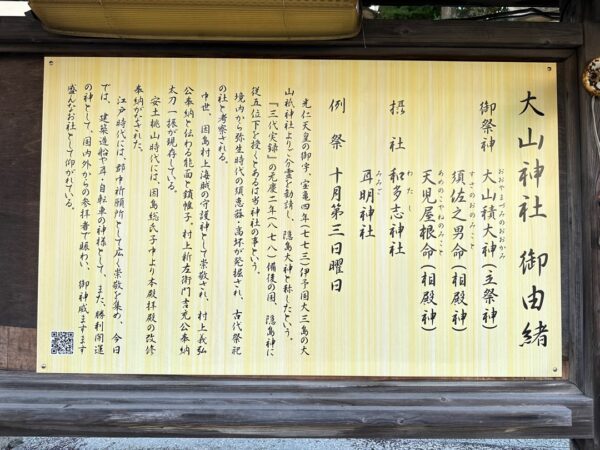 大山神社 御由緒
御祭神 大山積大神(主祭神)
おおやまづみのおおかみ
須佐之男命(相殿神)
すさのおのみこと
天児屋根命(相殿神)
あめのこやねのみこと
摂社 和多志神社
わたし
耳明神社
みみご
例祭 十月第三日曜日
光仁天皇の御宇、宝亀四年(七七三)伊予国大三島の大
山祇神社よりご分霊を勧請し、隠島大神と称したという。
『三代実録』の元慶二年(八七八)備後の国、隠島神に
従五位下を授くとあるは当神社の事という。
境内から弥生時代の須恵器・高坏が発掘され、古代祭祀
の社と考察される。
中世、因島村上海賊の守護神として崇敬され、村上義弘
公奉納と伝わる能面と錆帷子、村上新左衛門吉充公奉納
太刀一振が現存している。
安土桃山時代には、因島総氏子中より本殿拝殿の改修
奉納がなされた。
江戸時代には、郡中祈願所として広く崇敬を集め、今日
では、建築造船や耳・自転車の神様として、また、勝利開運
の神として、国内外からの参拝者で賑わい、御神威ますます
盛んなお社として仰がれている。